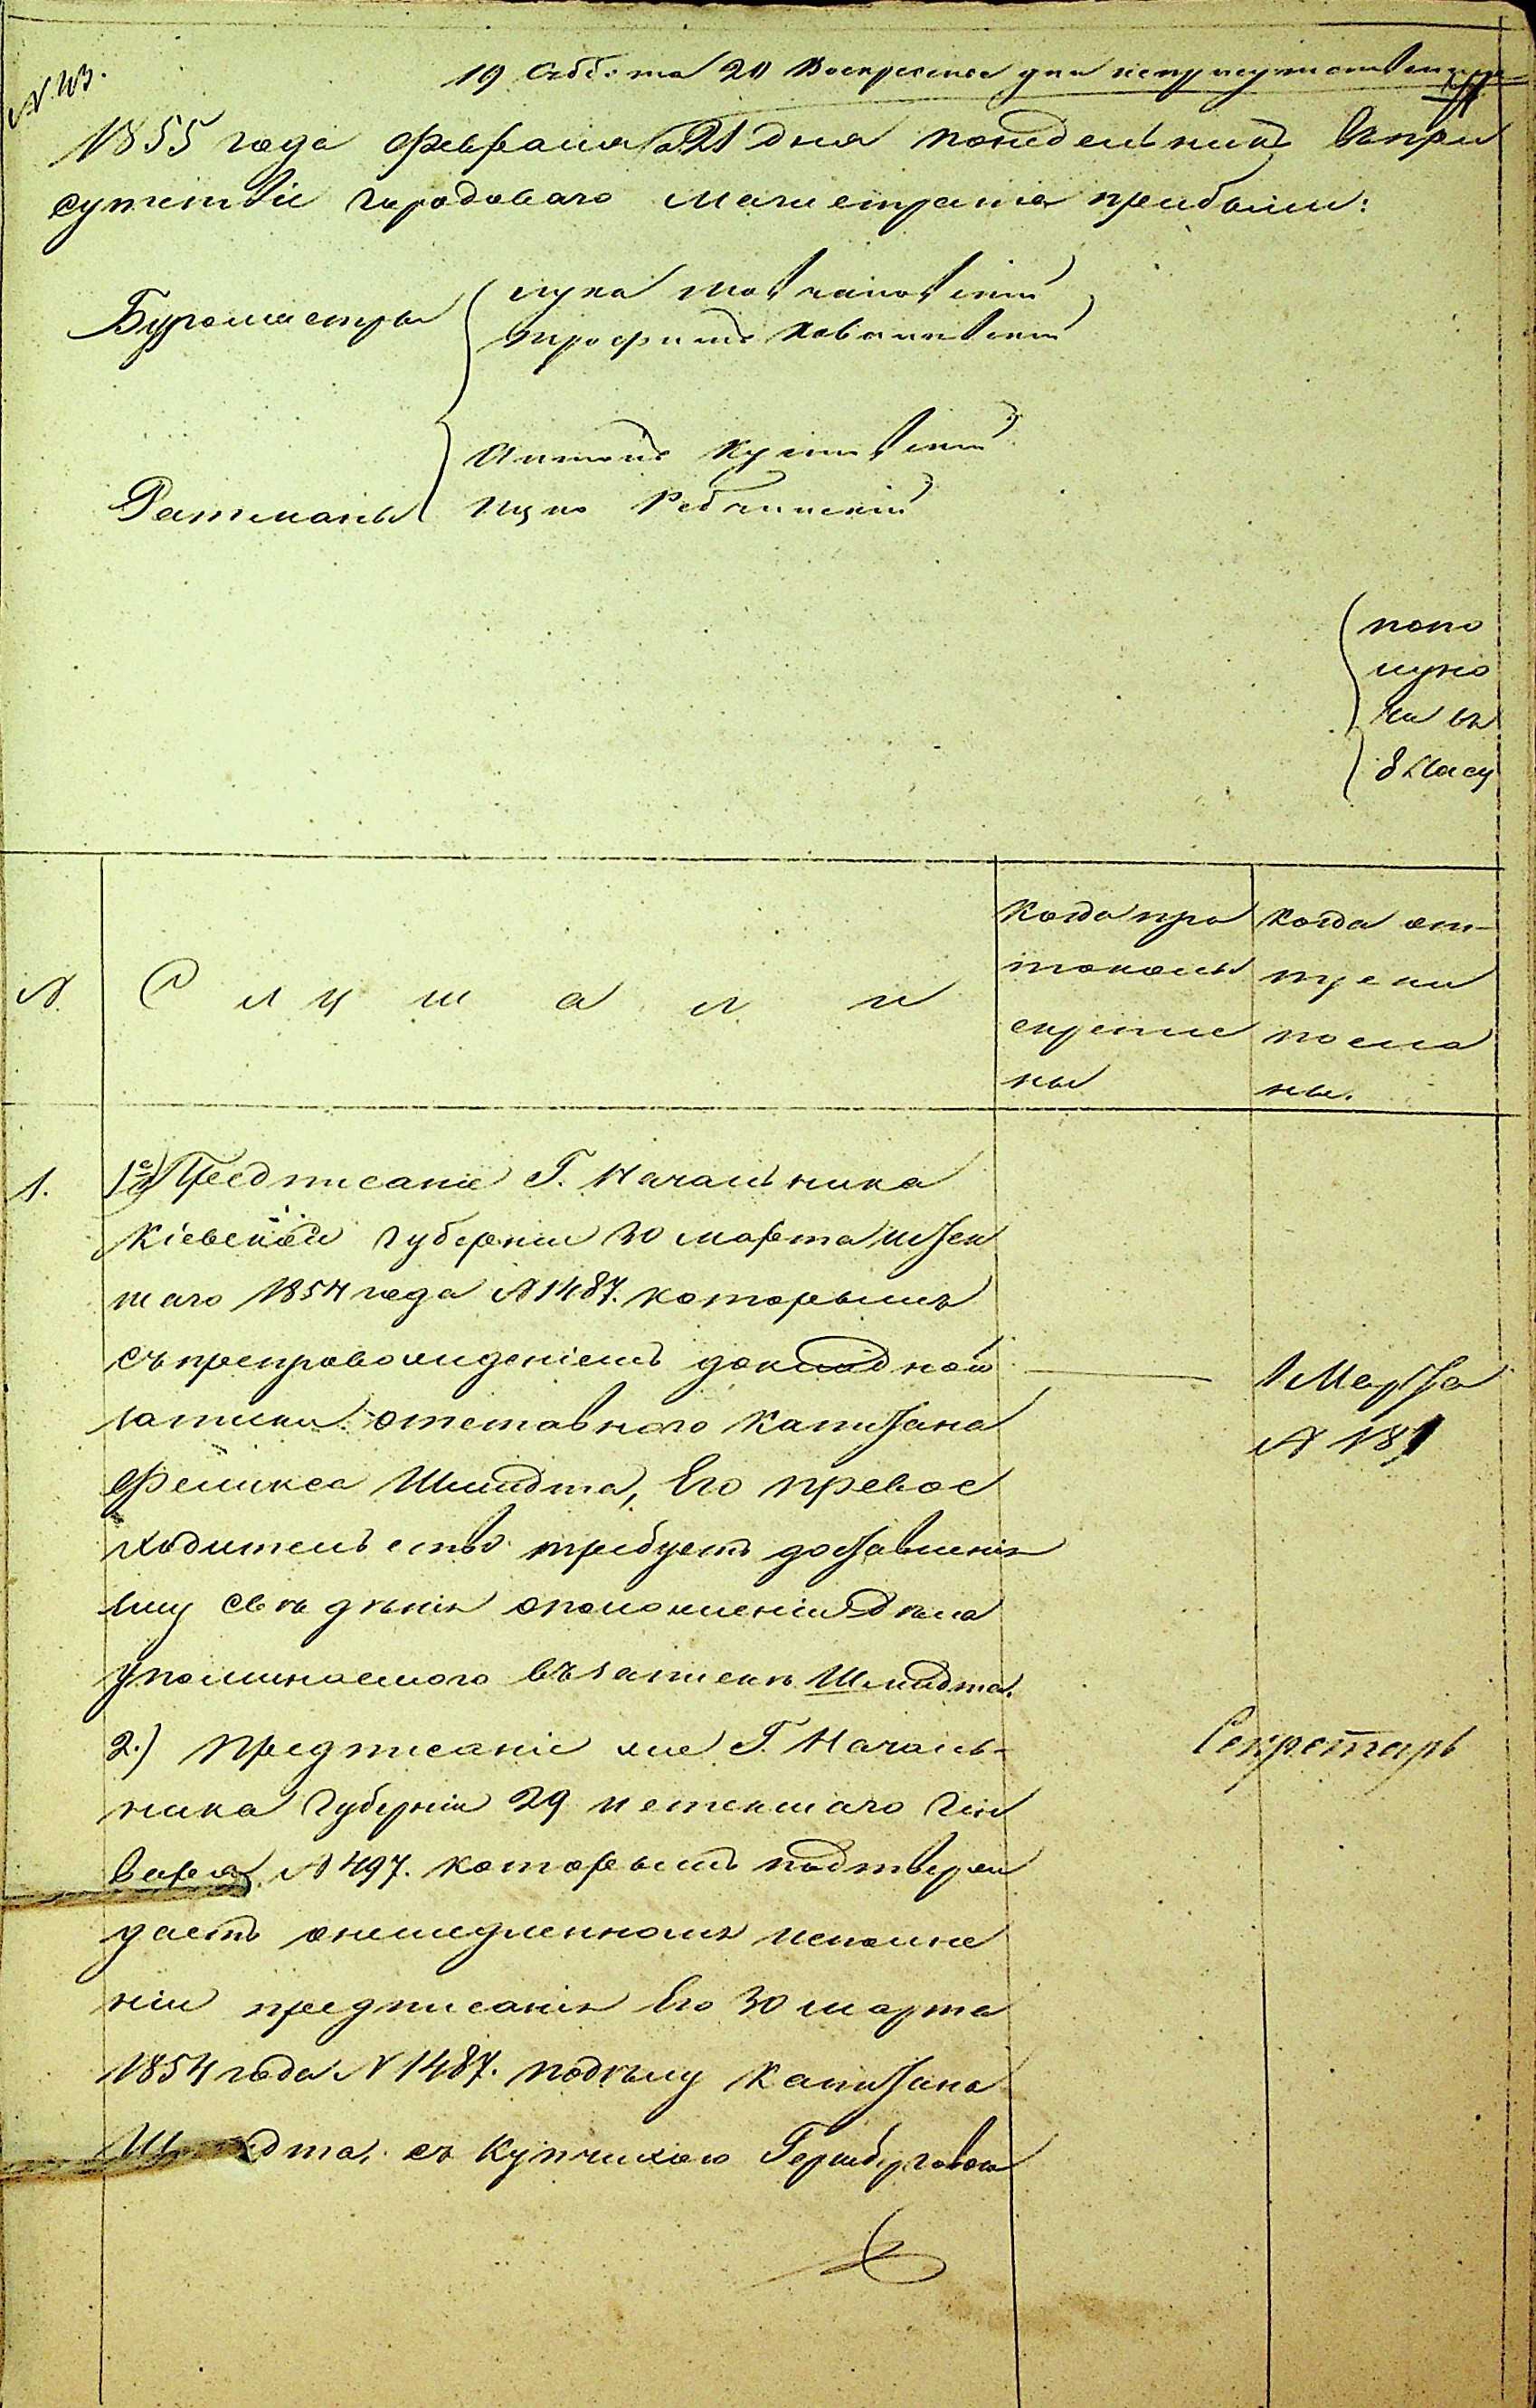 19 Суббота 20 Воскресенье дни неприсутственные
1855 года Февраля 21 дня понедельникъ Въ при
сутствіе городоваго магистрата прибыли:
Бургомистры
Лука
Трофимъ
Антонъ
Ратманы
попо
луно
чи въ
8 часу
№
Слушали
Когда про
токолы
скрепле
ны
Когда от-
пуски
посла
ны.
1.
1е) Предписаніе Г. Начальника
Кіевской Губерніи 30 марта истек
шаго 1854 года № 1487. которымъ
съ препровожденіемъ докладной
записки отставнаго Капитана
Феликса Шмидта, Его Превос
ходительство требуетъ доставленія
ему сведенія о положеніи дела
упоминаемого въ записке Шмидта.
2.) Предписаніе же Г. Началь-
ника Губерніи 29 истекшаго Ген
варя № 497. которымъ подтверж
даетъ о немедленномъ исполне
ніи предписанія Его 30 марта
1854 года № 1487. по делу Капитана
Шмидта, съ Купчихою
1 Марта
№ 181
Секретарь